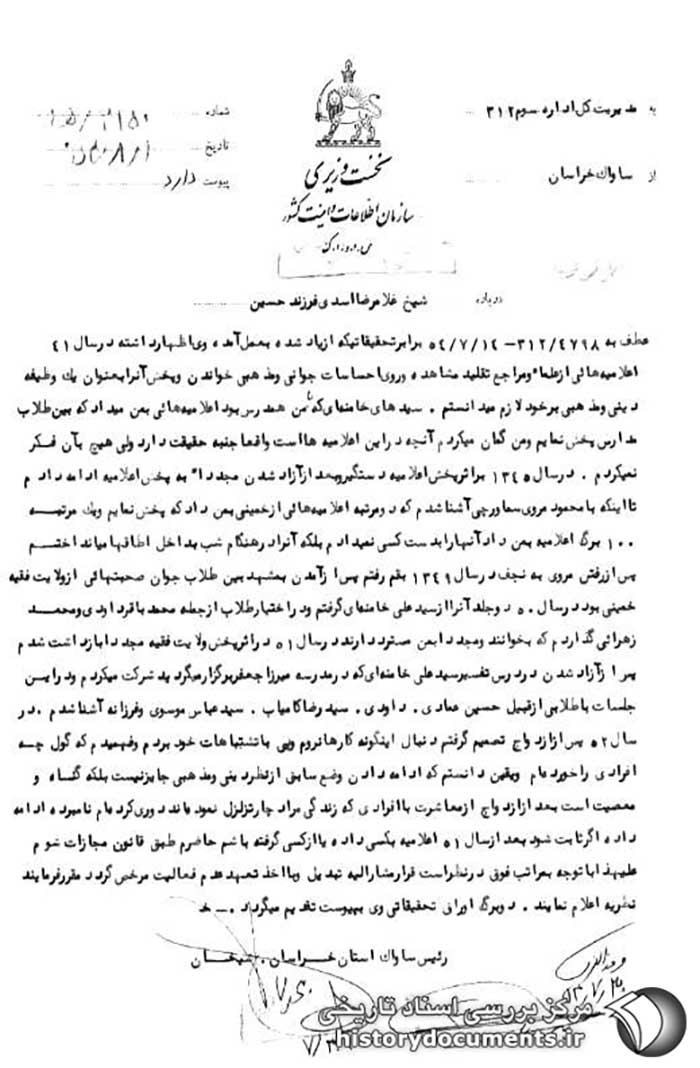 به مدیریت کل اداره سوم ۳۱۲
از ساواک خراسان
شماره
تاریخ
پیوست دارد
نخست وزیری
سازمان اطلاعات و امنیت کشور
درباره شیخ غلامرضا اسدی فرزند حسین
عطف به ۳۱۲/٤۷۹۸ – ٥٤/۷/۱٤ برابر تحقیقاتیکه از یاد شده بعمل آمده وی اظهار داشته در سال ٤۱
اعلامیه هائی از علماء و مراجع تقلید مشاهده و روی احساسات جوانی و مذهبی خواندن و پخش آنرا بعنوان یك وظیفه
دینی و مذهبی بر خود لازم میدانستم . سید های خامنه ای که با من همدرس بود اعلامیه هائی بمن میداد که بین طلاب
مدارس پخش نمایم و من گمان میکردم آنچه در این اعلامیه ها است واقعا جنبه حقیقت دارد ولی هیچ بآن فکر
نمیکردم . در سال ۱۳٤٥ براثر پخش اعلامیه دستگیر و بعد از آزاد شدن مجدداً به پخش اعلامیه ادامه دادم
تا اینکه با محمود مروی سماورچی آشنا شدم که دو مرتبه اعلامیه هائی از خمینی بمن داد که پخش نمایم ویك مرتبه
۱۰۰ برگ اعلامیه بمن داد آنها را بدست کسی نمیدادم بلکه آنرا در هنگام شب بداخل اطاقها میانداختم
پس از رفتن مروی به نجف در سال ۱۳٤۹ بقم رفتم پس از آمدن بمشهد بین طلاب جوان صحبتهائی از ولایت فقیه
خمینی بود در سال ٥۰ دو جلد آنرا از سید علی خامنه ای گرفتم و در اختیار طلاب از جمله محمد باقر داودی و محمد
زهرائی گذاردم که بخوانند و مجددا بمن مسترد دارند در سال ٥۱ در اثر پخش ولایت فقیه مجددا بازداشت شدم
پس از آزاد شدن در درس تفسیر سید علی خامنه ای که در مدرسه میرزا جعفر برگزار میگردید شرکت میکردم و در این
جلسات با طلابی از قبیل حسین عمادی . داودی . سید رضا کامیاب . سید عباس موسوی و فرزانه آشنا شدم . در
سال ٥۲ پس از ازدواج تصمیم گرفتم دنبال اینگونه کارها نروم و پی باشتباهات خود بردم و فهمیدم که گول چه
افرادی را خورده ام ویقین دانستم که ادامه دادن وضع سابق از نظر دینی و مذهبی جایز نیست بلکه گناه و
معصیت است بعد از ازدواج از معاشرت با افرادی که زندگی مرا دچار تزلزل نموده اند دوری کرده ام نامبرده ادامه
داده اگر ثابت شود بعد از سال ٥۱ اعلامیه بکسی داده یا از کسی گرفته باشم حاضرم طبق قانون مجازات شوم
علیهذا با توجه بمراتب فوق در نظر است قرار مشارالیه تبدیل و با اخذ تعهد عدم فعالیت مرخص گردد مقرر فرمایند
نظریه اعلام نمایند . دو برگ اوراق تحقیقاتی وی بپیوست تقدیم میگردد .
رئیس ساواك استان خراسان . شیخان
مرکز بررسی اسناد تاریخی
historydocuments.ir